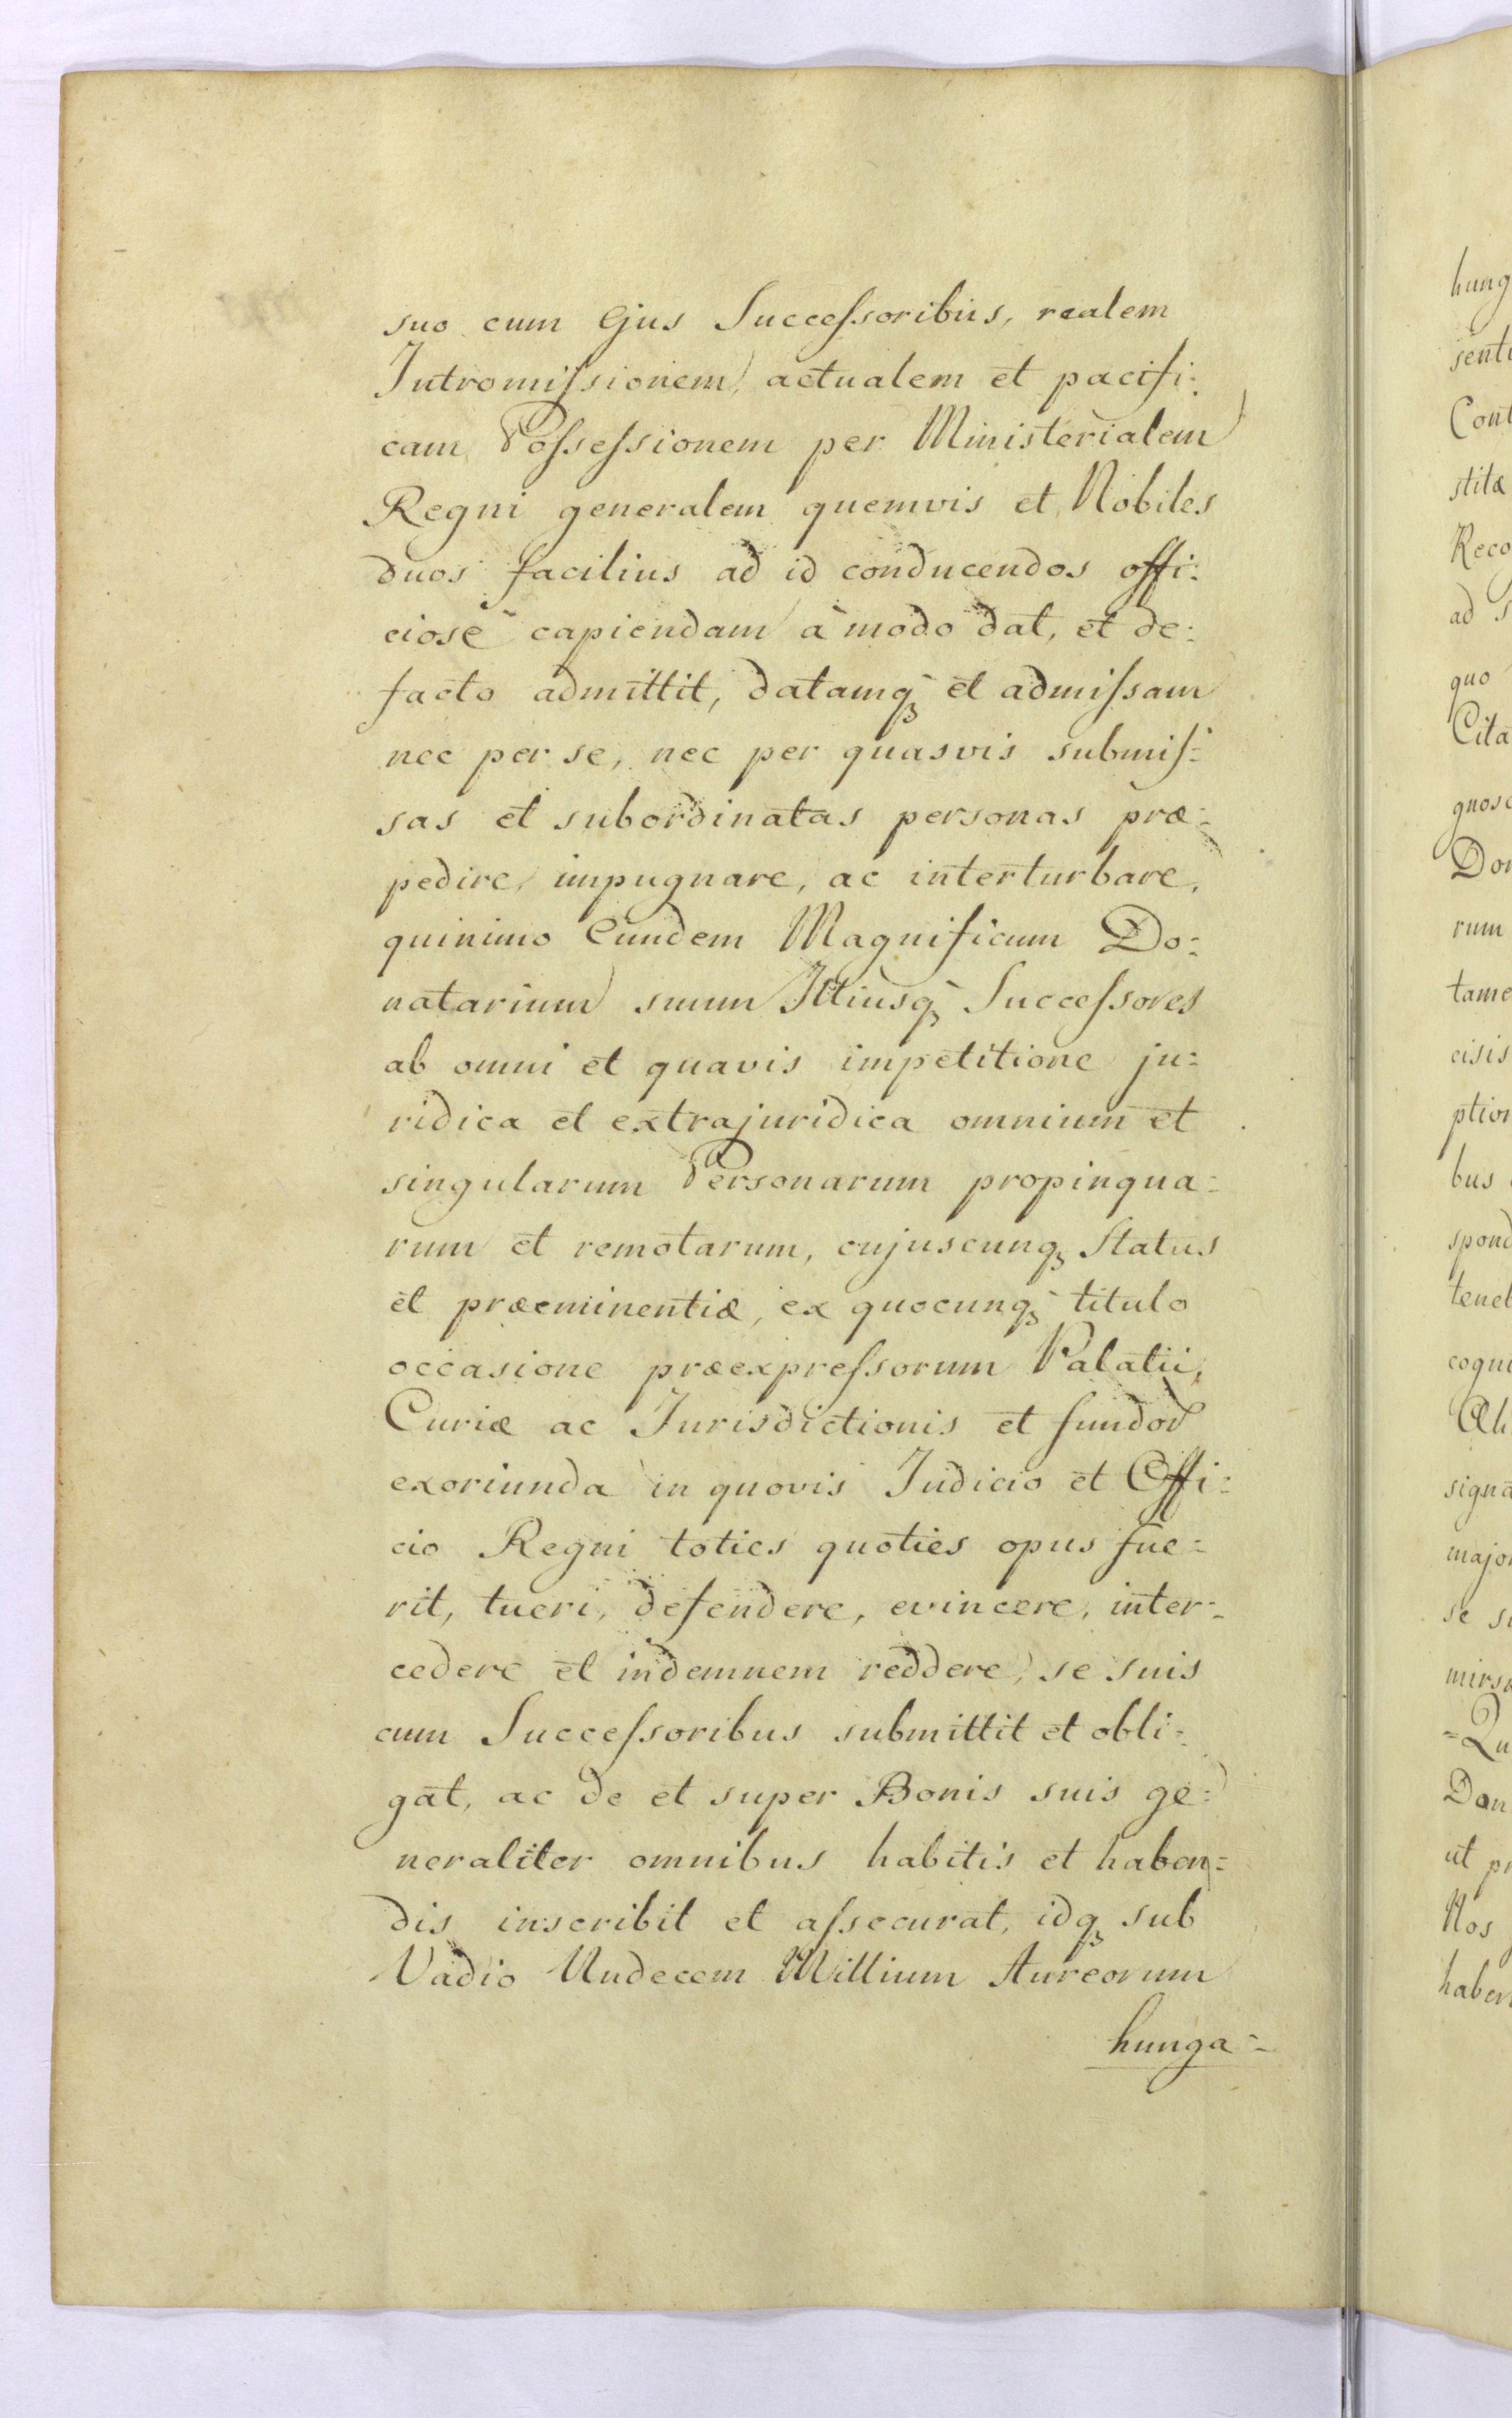 suo cum Ejus Succeſsoribus, realem
Intromiſsionem, actualem et pacifi:
cam Poſseſsionem per Ministerialem
Regni generalem quemvis et Nobiles
duos facilius ad id conducendos offi:
ciosè capiendam à modo dat, et de:
facto admittit, datamqꝫ et admiſsam
nec per se, nec per quasvis submiſ:
sas et subordinatas personas præ:
pedire, impugnare, ac interturbare,
quinimo Eundem Magnificum Do:
natarium suum Illiusqꝫ Succeſsores
ab omni et quavis impetitione ju:
ridica et extrajuridica omnium et
singularum Personarum propinqua:
rum et remotarum, cujuscunqꝫ Status
et præeminentiæ, ex quocunqꝫ titulo
occasione præexpreſsorum Palatii,
Curiæ ac Jurisdictionis et fundoꝝ
exoriunda in quovis Judicio et Offi:
cio Regni toties quoties opus fue:
rit, tueri, defendere, evincere, inter:
cedere et indemnem reddere, se suis
cum Succeſsoribus submittit et obli:
gat, ac de et super Bonis suis ge:
neraliter omnibus habitis et haben:
dis inscribit et aſsecurat, idqꝫ sub
Vadio Undecem Millium Aureorum
hunga:
hung
senti
Cont
stitæ
Reco
ad
quo
Cita
gnosc
Don
rum
tame
cisis
ption
bus
spond
tenet
cogni
signa
major
se
Qu
Dan
ut
Nos
haben